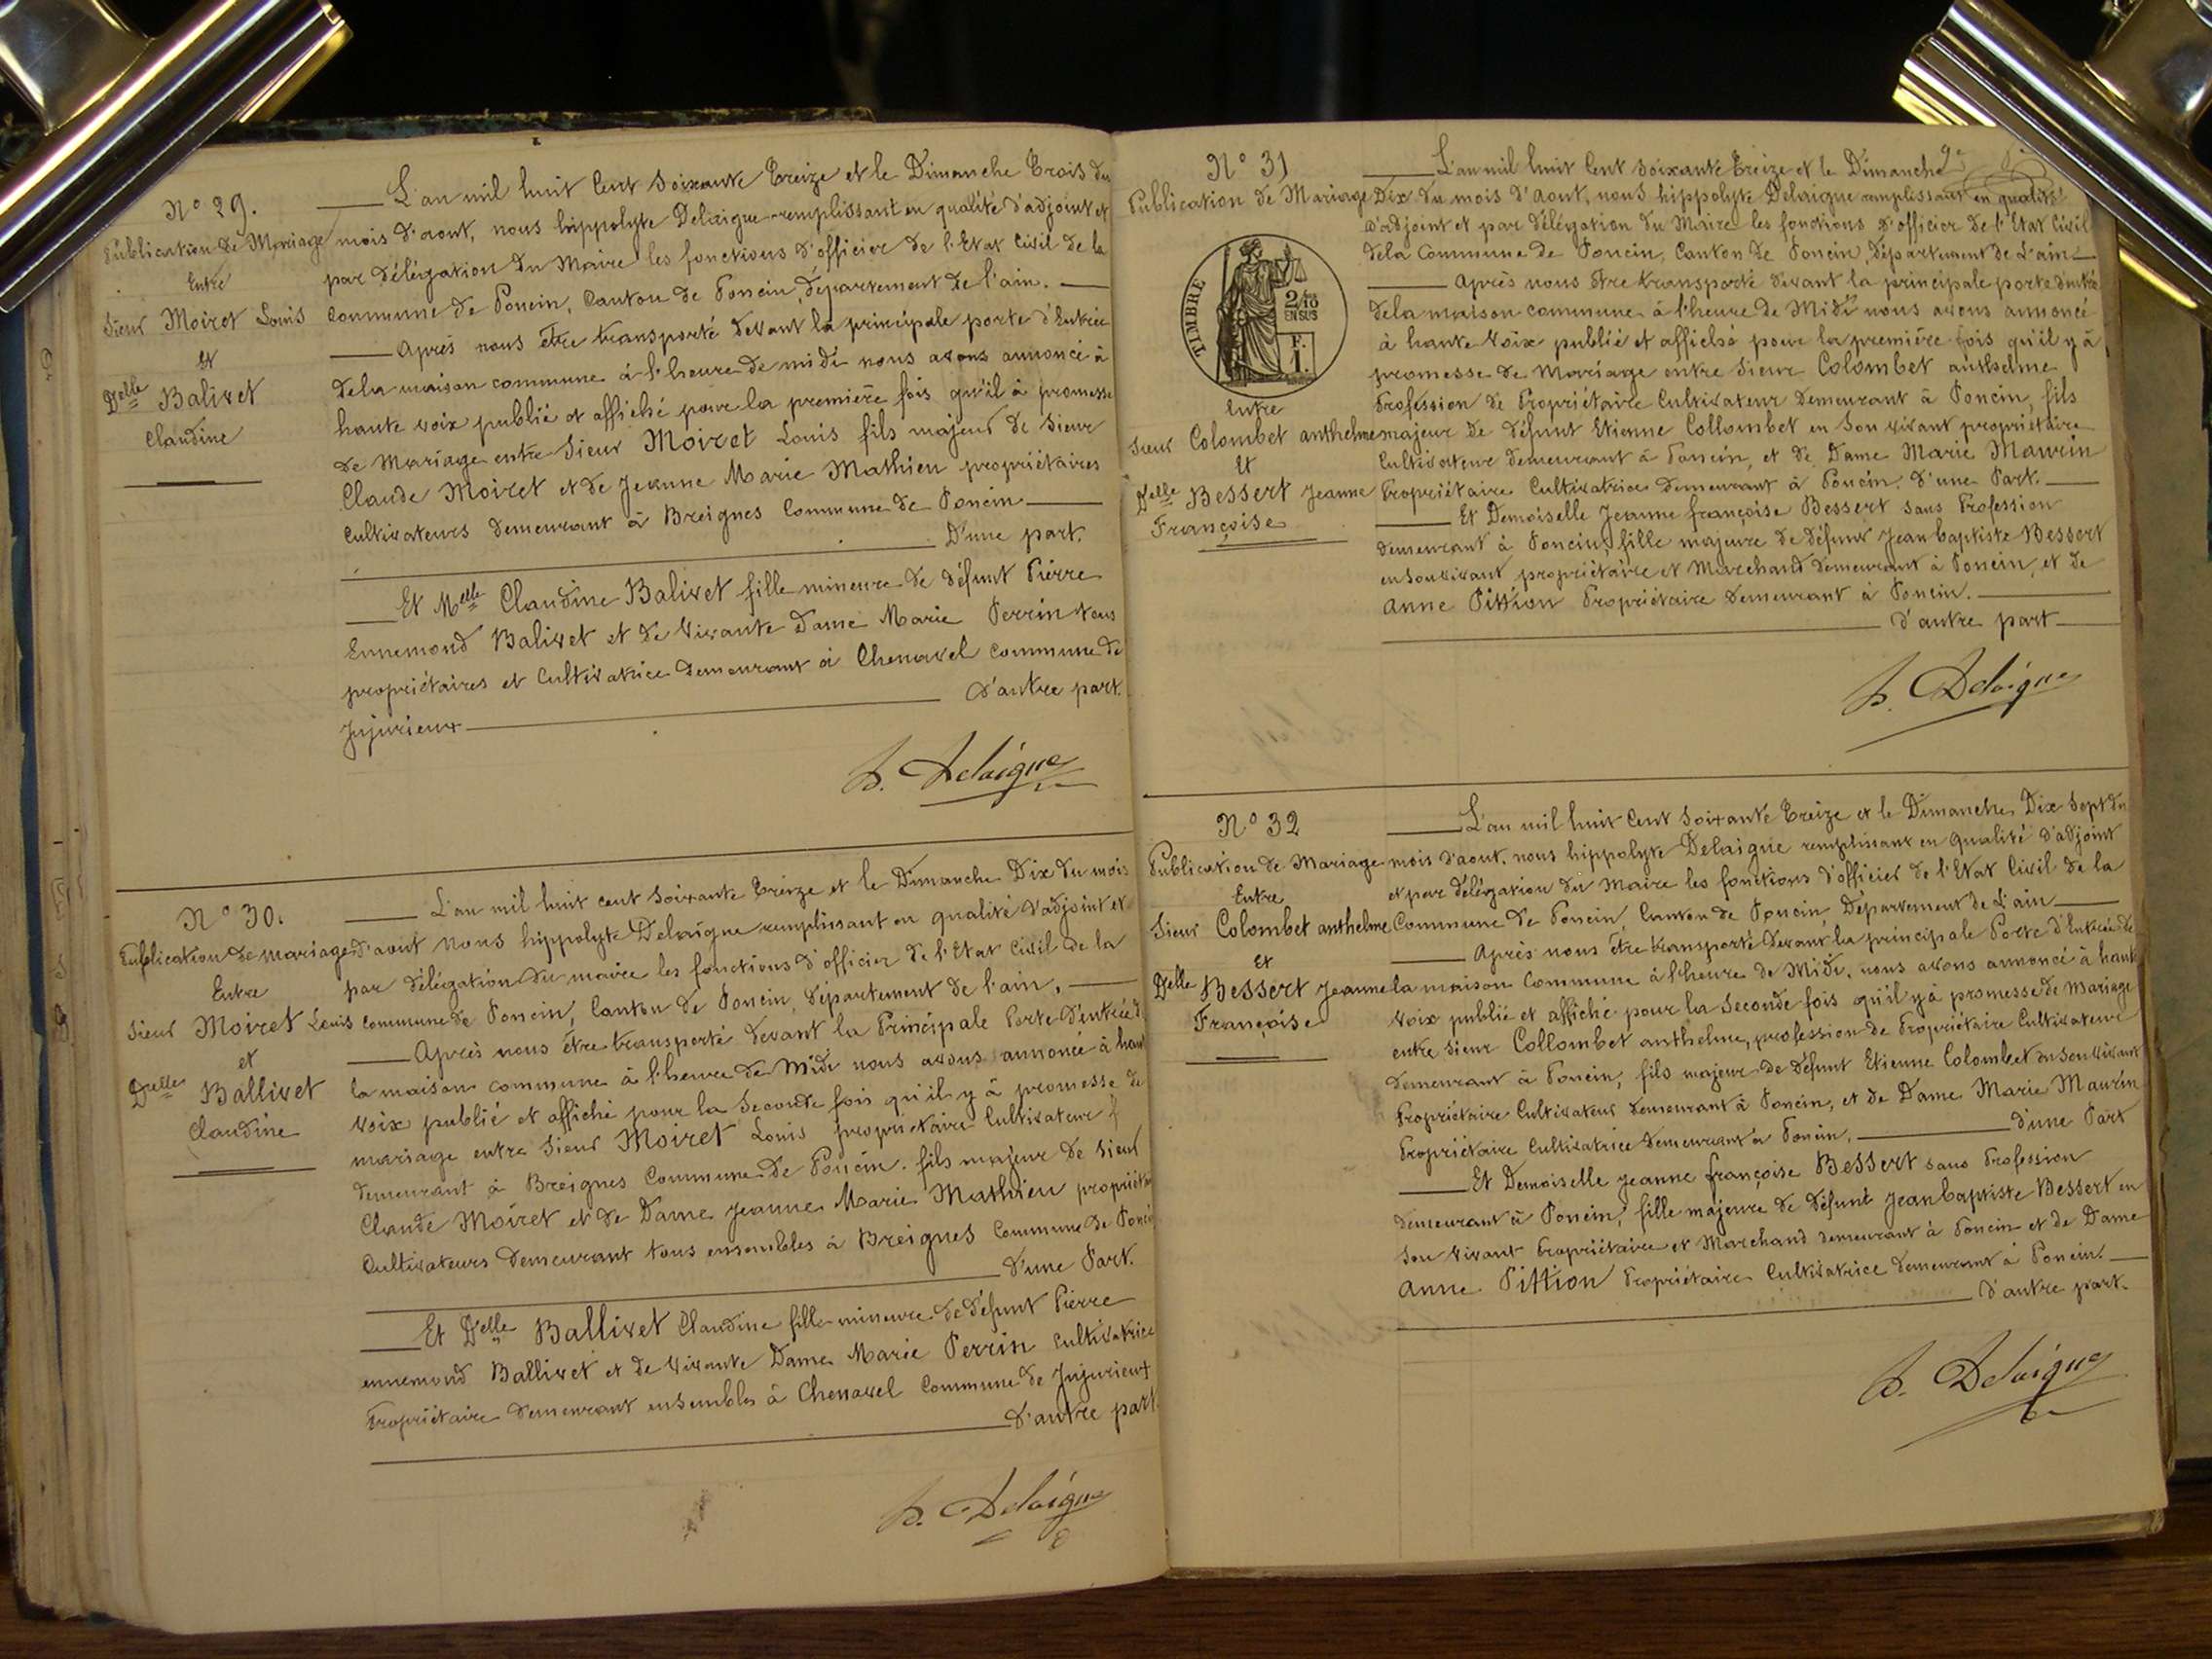 N° 29.
Publication de Mariage
Entre
Sieur Moiret Louis
Et
Delle Balivet
Claudine
L'an mil huit Cent Soixante Treize et le Dimanche Trois du
mois d'aout, nous hippolyte Delaigue remplissant en qualité d'adjoint et
par délégation du Maire les fonctions d'officier de l'Etat Civil de la
Commune de Poncin, Canton de Poncin, département de l'ain.
Après nous être transporté devant la principale porte d'Entrée
de la maison commune à l'heure de midi nous avons annoncé à
haute voix publié et affiché pour la première fois qu'il à promesse
de Mariage entre Sieur Moiret Louis fils majeur de Sieur
Claude Moiret et de Jeanne Marie Mathieu propriétaires
Cultivateurs demeurant à Breignes Commune de Poncin
D'une part.
Et Melle Claudine Balivet fille mineure de défunt Pierre
Ennemond Balivet et de vivante Dame Marie Perrin tous
propriétaires et Cultivatrice demeurant à Chenavel commune de
Jujurieux d'autre part.
h. Delaigue
N° 30.
Publication de mariage
Entre
Sieur Moiret Louis
et
Delle Ballivet
Claudine
L'an mil huit cent soixante Treize et le Dimanche Dix du mois
d'aout nous hippolyte Delaigue remplissant en qualité d'adjoint et
par délégation du maire les fonctions d'officier de l'Etat Civil de la
commune de Poncin, Canton de Poncin, département de l'ain.
Après nous être transporté devant la Principale Porte d'entrée d
la maison commune à l'heure de Midi nous avons annonce à haut
voix publié et affiché pour la Seconde fois qu'il y à promesse de
mariage entre Sieur Moiret Louis propriétaire Cultivateur
demeurant à Breignes Commune de Poncin. fils majeur de Sieur
Claude Moiret et de Dame Jeanne Marie Mathieu propriétai
Cultivateurs Demeurant tous ensembles à Breignes Commune de Ponci
d'une Part.
Et Delle Ballivet Claudine fille mineure de défunt Pierre
ennemond Ballivet et de vivante Dame Marie Perrin cultivatrice
Propriétaire demeurant ensembles à Chenavel Commune de Jujurieux
D'autre part.
h. Delaigue
N° 31
Publication de Mariage
TIMBRE
2/10
EN SUS
F.
1.
Entre
Sieur Colombet anthelme
Et
Delle Bessert Jeanne
Françoise
L'an mil huit Cent soixante Treize et le Dimanche
Dix du mois d'aout, nous hippolyte Delaigue remplissant en qualité
d'adjoint et par délégation du Maire les fonctions d'officier de l'Etat Civil
de la Commune de Poncin, Canton de Poncin, Département de L'ain
Après nous être transporté devant la principale porte d'entré
de la maison commune à l'heure de Midi nous avons annoncé
à haute voix publié et affiché pour la première fois qu'il y à
promesse de Mariage entre Sieur Colombet anthelme
Profession de Propriétaire Cultivateur demeurant à Poncin, fils
majeur de défunt Etienne Collombet en Son vivant propriétaire
Cultivateur demeurant à Poncin, et de Dame Marie Maurin
Propriétaire Cultivatrice demeurant à Poncin. d'une Part.
Et Demoiselle Jeanne françoise Bessert sans Profession
demeurant à Poncin, fille majeure de défunt Jean baptiste Bessert
en son vivant propriétaire et Marchand demeurant à Poncin, et de
Anne Pittion Propriétaire demeurant à Poncin.
d'autre part
h. Delaigue
N° 32
Publication de Mariage
Entre
Sieur Colombet anthelme
Et
Delle Bessert Jeanne
Françoise
L'an mil huit Cent soixante Treize et le Dimanche Dix Sept du
mois d'aout. nous hippolyte Delaigue remplissant en qualité d'adjoint
et par délégation du Maire les fonctions d'officier de l'Etat Civil de la
Commune de Poncin, Canton de Poncin, Département de L'ain
Après nous être transporté devant la principale Porte d'Entrée de
la maison Commune à l'heure de Midi, nous avons annoncé à haute
voix publié et affiché pour la Seconde fois qu'il y à promesse de Mariage
entre Sieur Collombet anthelme, profession de Propriétaire Cultivateur
demeurant à Poncin, fils majeur de défunt Etienne Colombet en son vivant
Propriétaire Cultivateur demeurant à Poncin, et de Dame Marie Maurin
Propriétaire Cultivatrice demeurant à Poncin, d'une Part
Et Demoiselle Jeanne françoise Bessert sans Profession
demeurant à Poncin, fille majeure de défunt Jean baptiste Bessert en
son vivant Propriétaire et Marchand demeurant à Poncin et de Dame
Anne Pittion Propriétaire Cultivatrice demeurant à Poncin.
d'autre part.
h. Delaigue